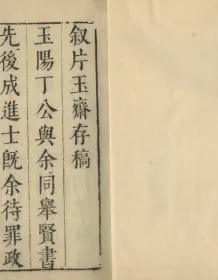 叙片玉齋存稿
玉陽丁公與余同舉賢書
先後成進士旣余待罪政